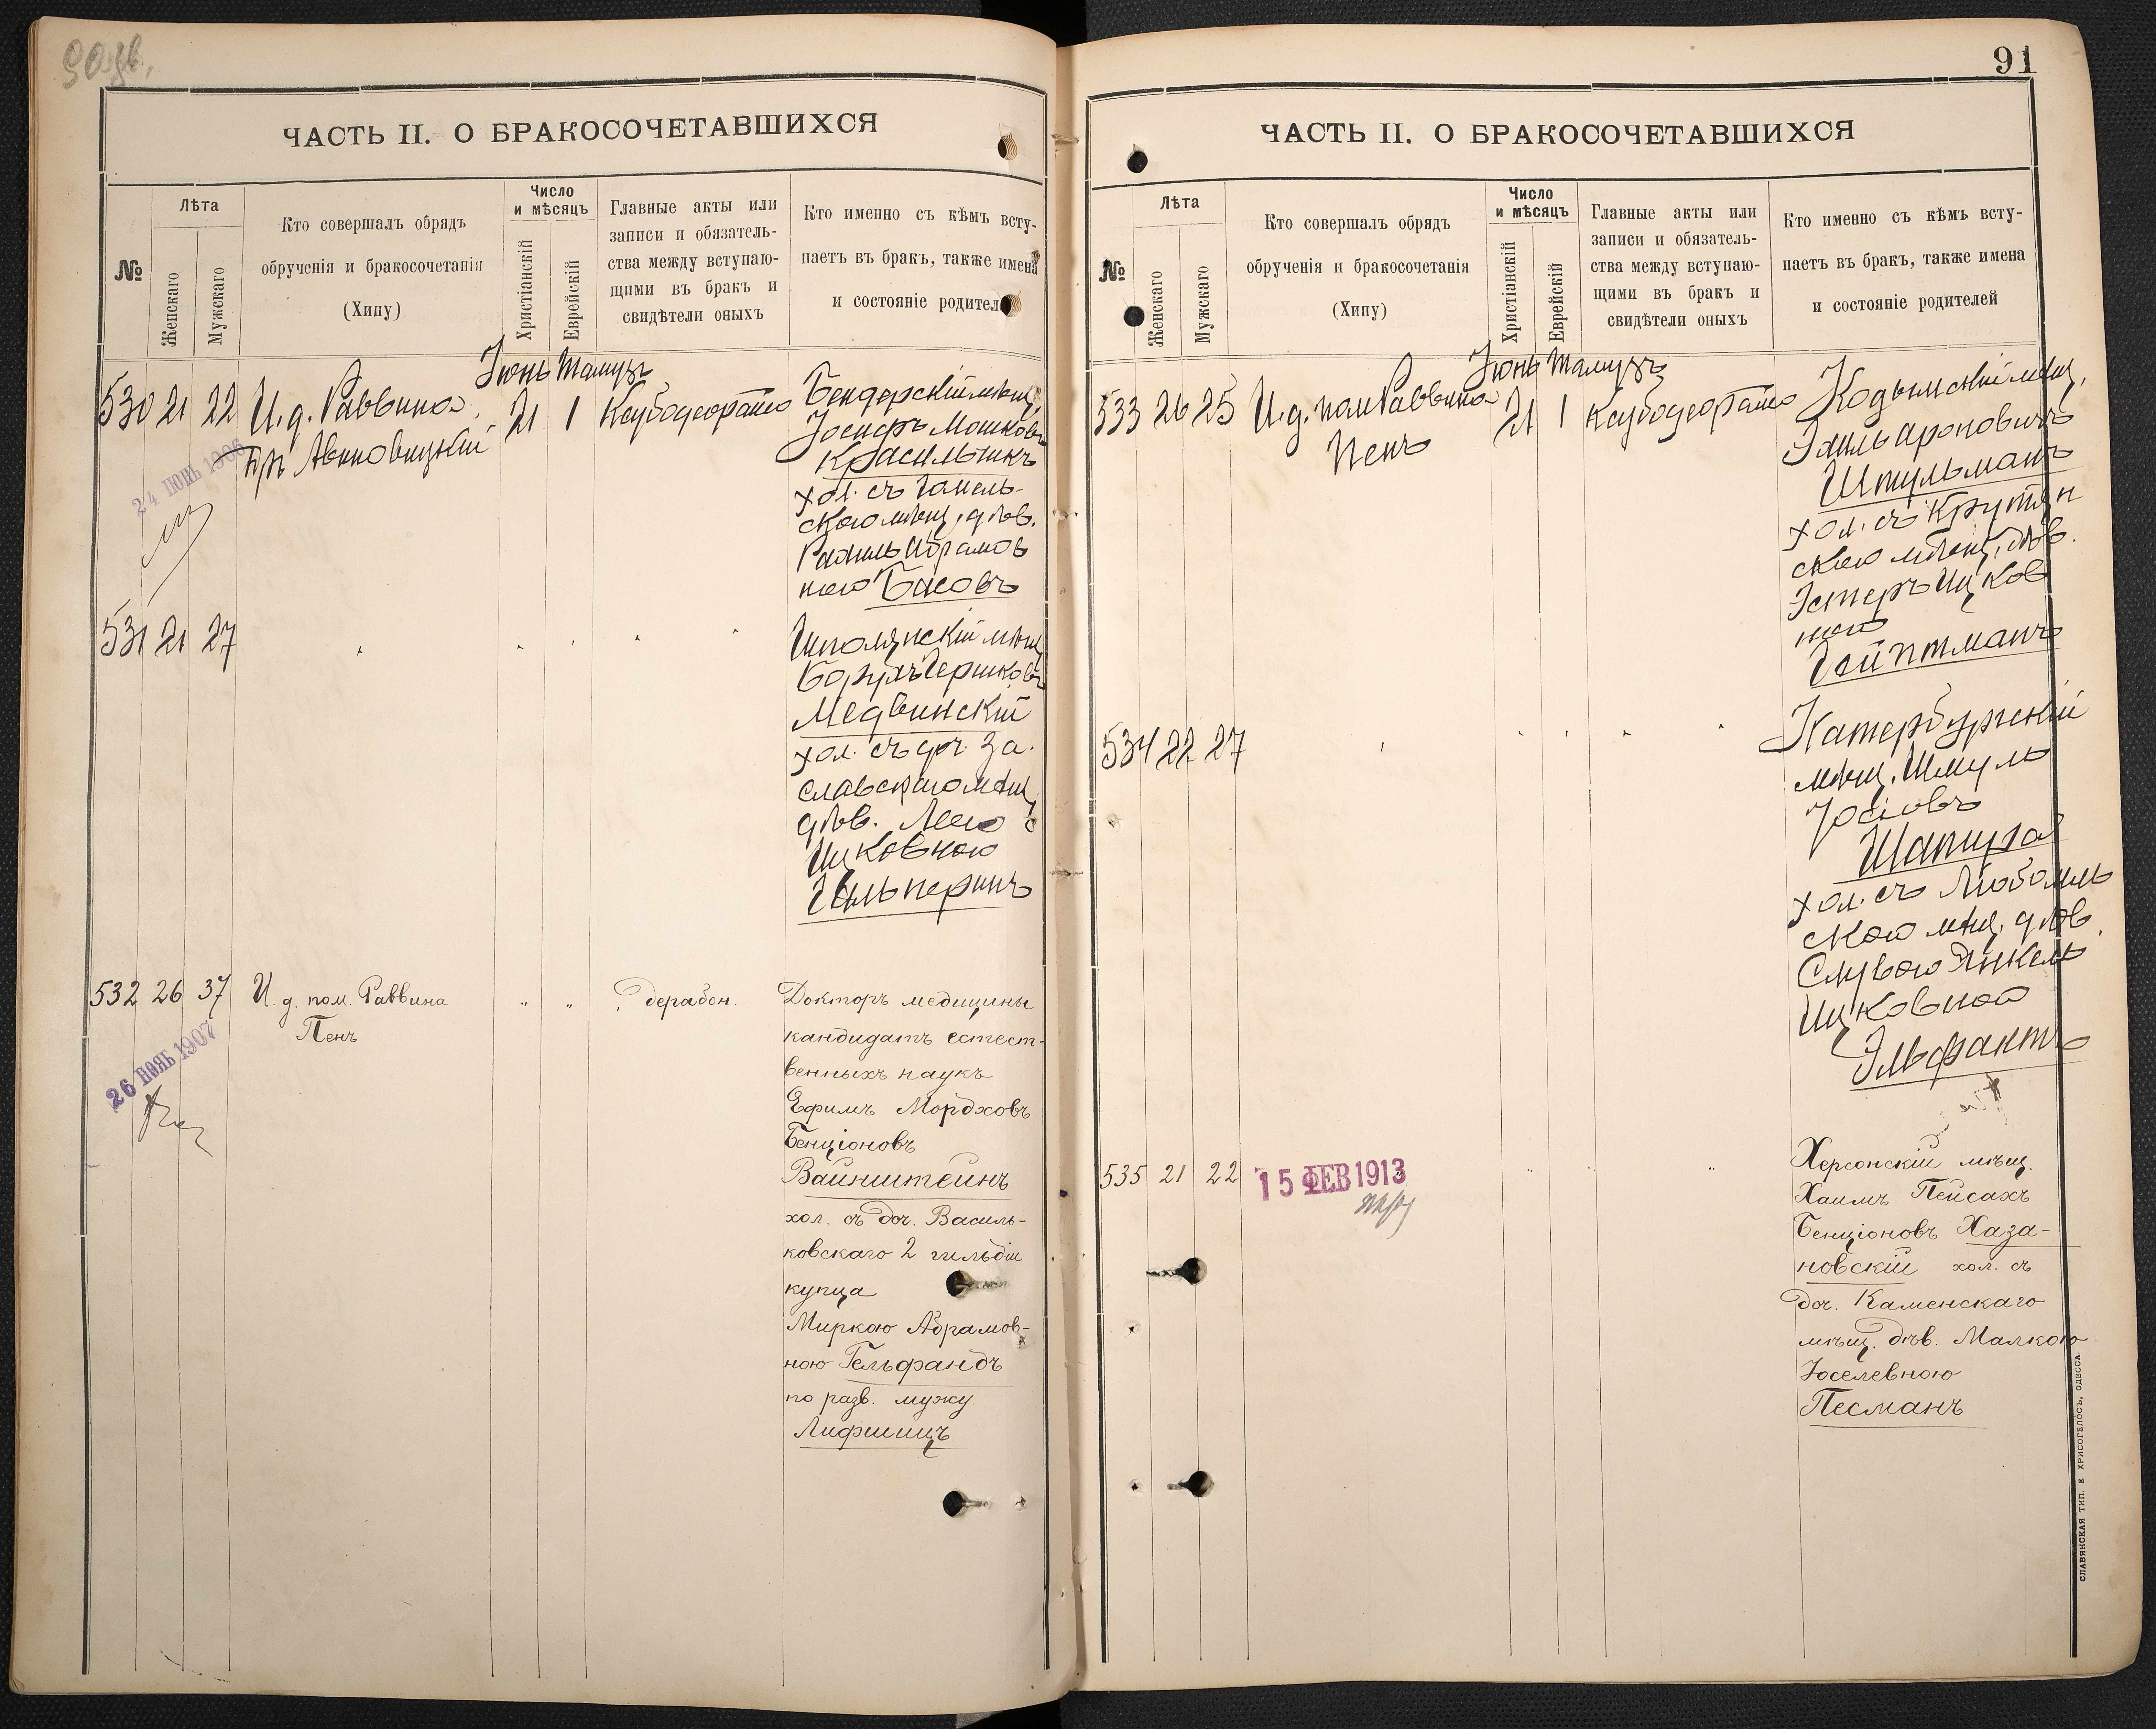 90 зв.
ЧАСТЬ II. О БРАКОСОЧЕТАВШИХСЯ
№
Лѣта
Женскаго
Мужскаго
Кто совершалъ обрядъ
обрученія и бракосочетанія
(Хипу)
Число
и мѣсяцъ
Христіанскій
Еврейскій
Главные акты или
записи и обязатель-
ства между вступаю-
щими въ бракъ и
свидѣтели оныхъ
Кто именно съ кѣмъ всту-
паетъ въ бракъ, также имена
и состояніе родител
Іюнь Тамузъ
530 21 22 И. д. Раввина
21 1
Бендерскій мѣщ.
Іосифъ Мошковъ
Красильникъ
хол. съ Гомель-
скою мѣщ. дѣв.
Рахиль Абрамов
ною Басовъ
24 ІЮНЬ 1906
531 21 27
Шполянскій мѣщ
Борухъ Гершковъ
Медвинскій
хол. съ доч. За-
славскаго мѣщ.
дѣв. Леею
Ицковною
Гальперинъ
532 26 37 И. д. пом. Раввина
Пенъ
" "
дерабон.
Докторъ медицины
кандидатъ естест-
венныхъ наукъ
Ефимъ Мордховъ
Бенціоновъ
Вайнштейнъ
хол. съ доч. Василь-
ковскаго 2 гильдіи
купца
Миркою Абрамов-
ною Гельфандъ
по разв. мужу
Лифшицъ
26 НОЯБ 1907
91
ЧАСТЬ II. О БРАКОСОЧЕТАВШИХСЯ
№
Лѣта
Женскаго
Мужскаго
Кто совершалъ обрядъ
обрученія и бракосочетанія
(Хипу)
Число
и мѣсяцъ
Христіанскій
Еврейскій
Главные акты или
записи и обязатель-
ства между вступаю-
щими въ бракъ и
свидѣтели оныхъ
Кто именно съ кѣмъ всту-
паетъ въ бракъ, также имена
и состояніе родителей
Іюнь Тамузъ
533 26 25 И. д. пом Раввина
Пенъ
21 1
Кодымскій мѣщ.
Ароновичъ
Шпульманъ
хол. съ Крутян
скою мѣщ. дѣв.
Эстеръ Ицков
ною
Гойптманъ
534 22 27
Катербургскій
мѣщ. Шмуль
Іосіовъ
Шапира
хол. съ Любомль
скою мѣщ. дѣв.
Слувою Янкель
Ицковной
Эльфантъ
535 21 22
15 ФЕВ 1913
Херсонскій мѣщ.
Хаимъ Пейсахъ
Бенціоновъ Хаза-
новскій хол. съ
доч. Каменскаго
мѣщ. дѣв. Малкою
Іоселевною
Песманъ
СЛАВЯНСКАЯ ТИП. Е ХРИСОГЕЛОСЪ, ОДЕССА.